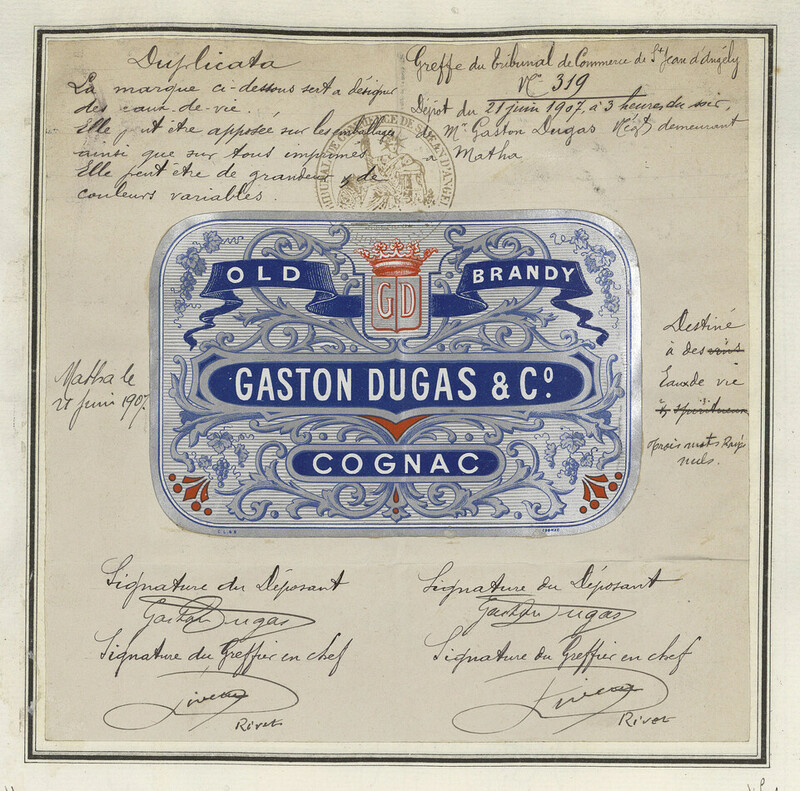 Duplicata
La marque ci-dessous sert a désigner
des eaux-de-vie.
Elle peut être apposée sur les emballages
ainsi que sur tous imprimés
Elle peut être de grandeur & de
couleurs variables.
Greffe du tribunal de Commerce de St Jean d'Angély
No 319
Dépôt du 21 juin 1907, à 3 heures du soir,
de Mr Gaston Dugas Négt demeurant
a Matha
TRIBUNAL DE COMMERCE DE ST JEAN D'ANGELY
OLD BRANDY
GD
GASTON DUGAS & Co.
COGNAC
Matha le
21 juin 1907.
Destiné
à des vins
Eaux de vie
& Spiritueux
trois mots Rayés
nuls.
Signature du Déposant
Gaston Dugas
Signature du Greffier en chef
Rivet
Signature du Déposant
Gaston Dugas
Signature du Greffier en chef
Rivet